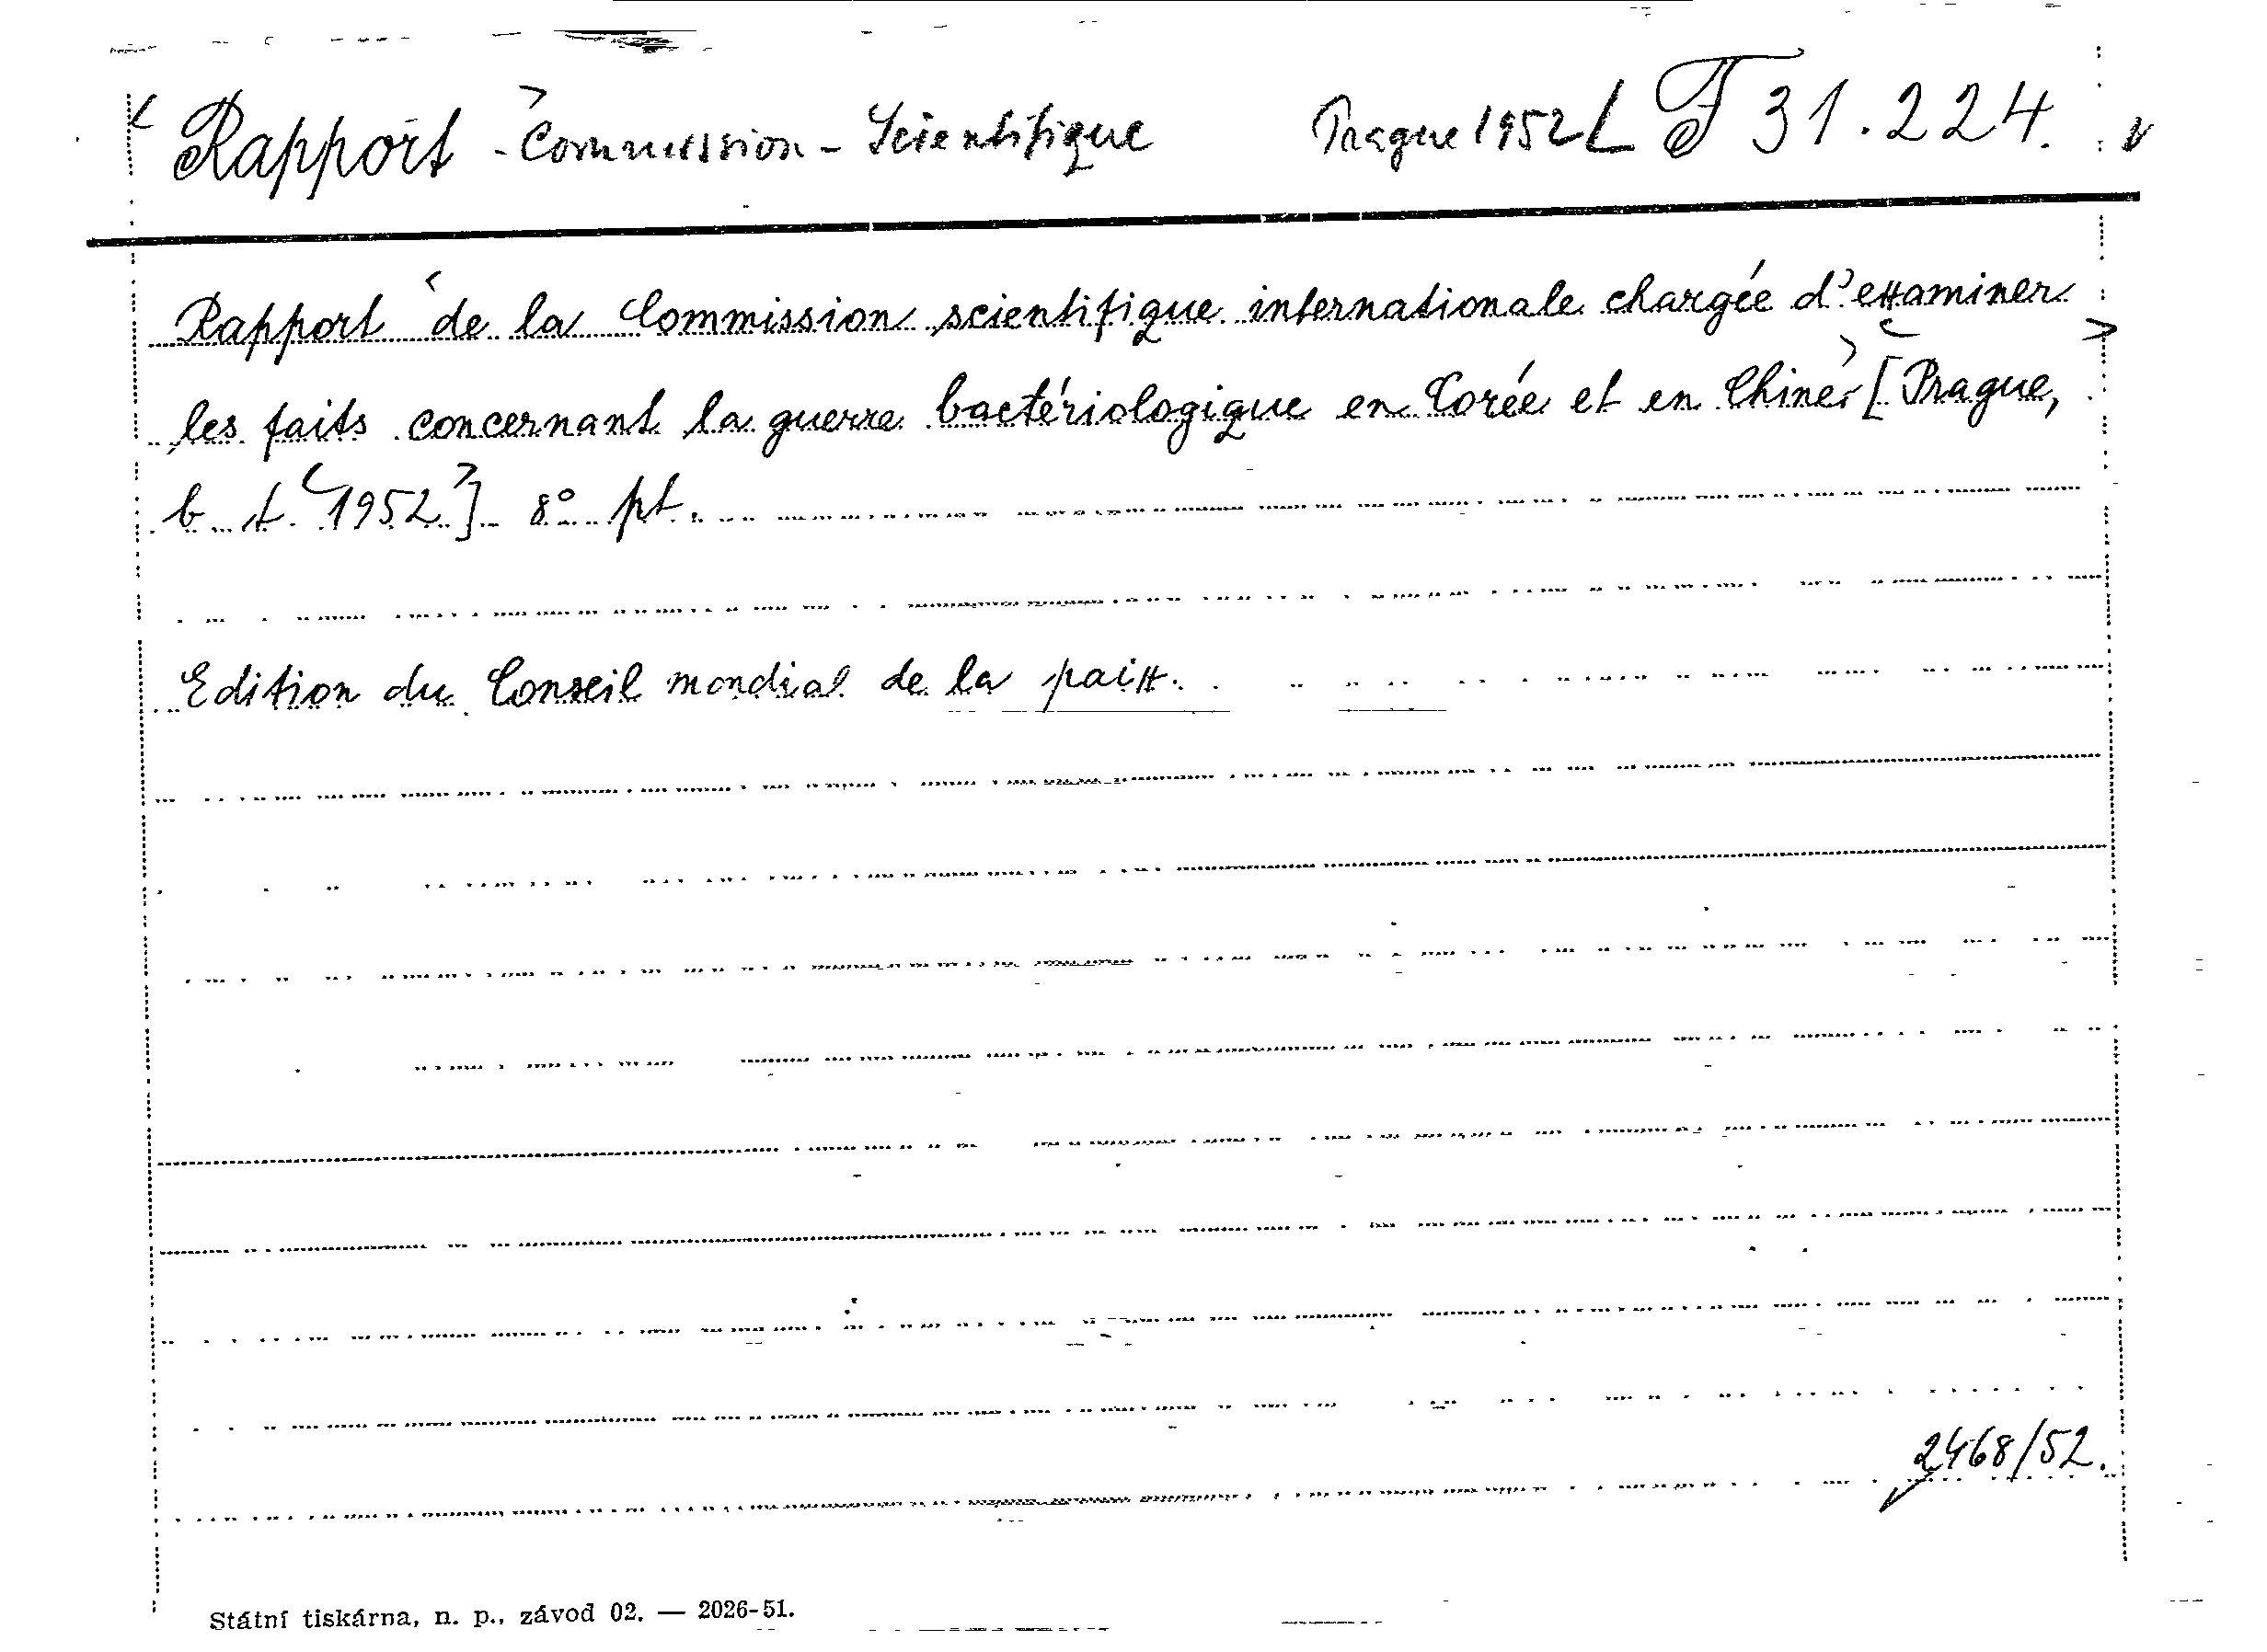 Rapport - Commission - Scientifique Prague 1952 F 31.224.
Rapport de la Commission scientifique internationale chargée d'examiner
les faits concernant la guerre bactériologique en Corée et en Chine. [Prague,
b. t. 1952] 8° pt.
Edition du Conseil mondial de la paix.
2468/52.
Státní tiskárna, n. p., závod 02. — 2026-51.